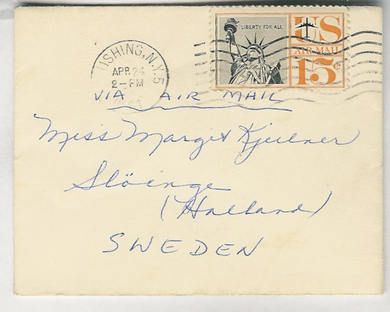 USHING, N.Y. 5
APR 24
2-PM
LIBERTY FOR ALL
US
AIR MAIL
15¢
VIA AIR MAIL
Miss Margit Kjellner
Slöinge
(Halland)
SWEDEN